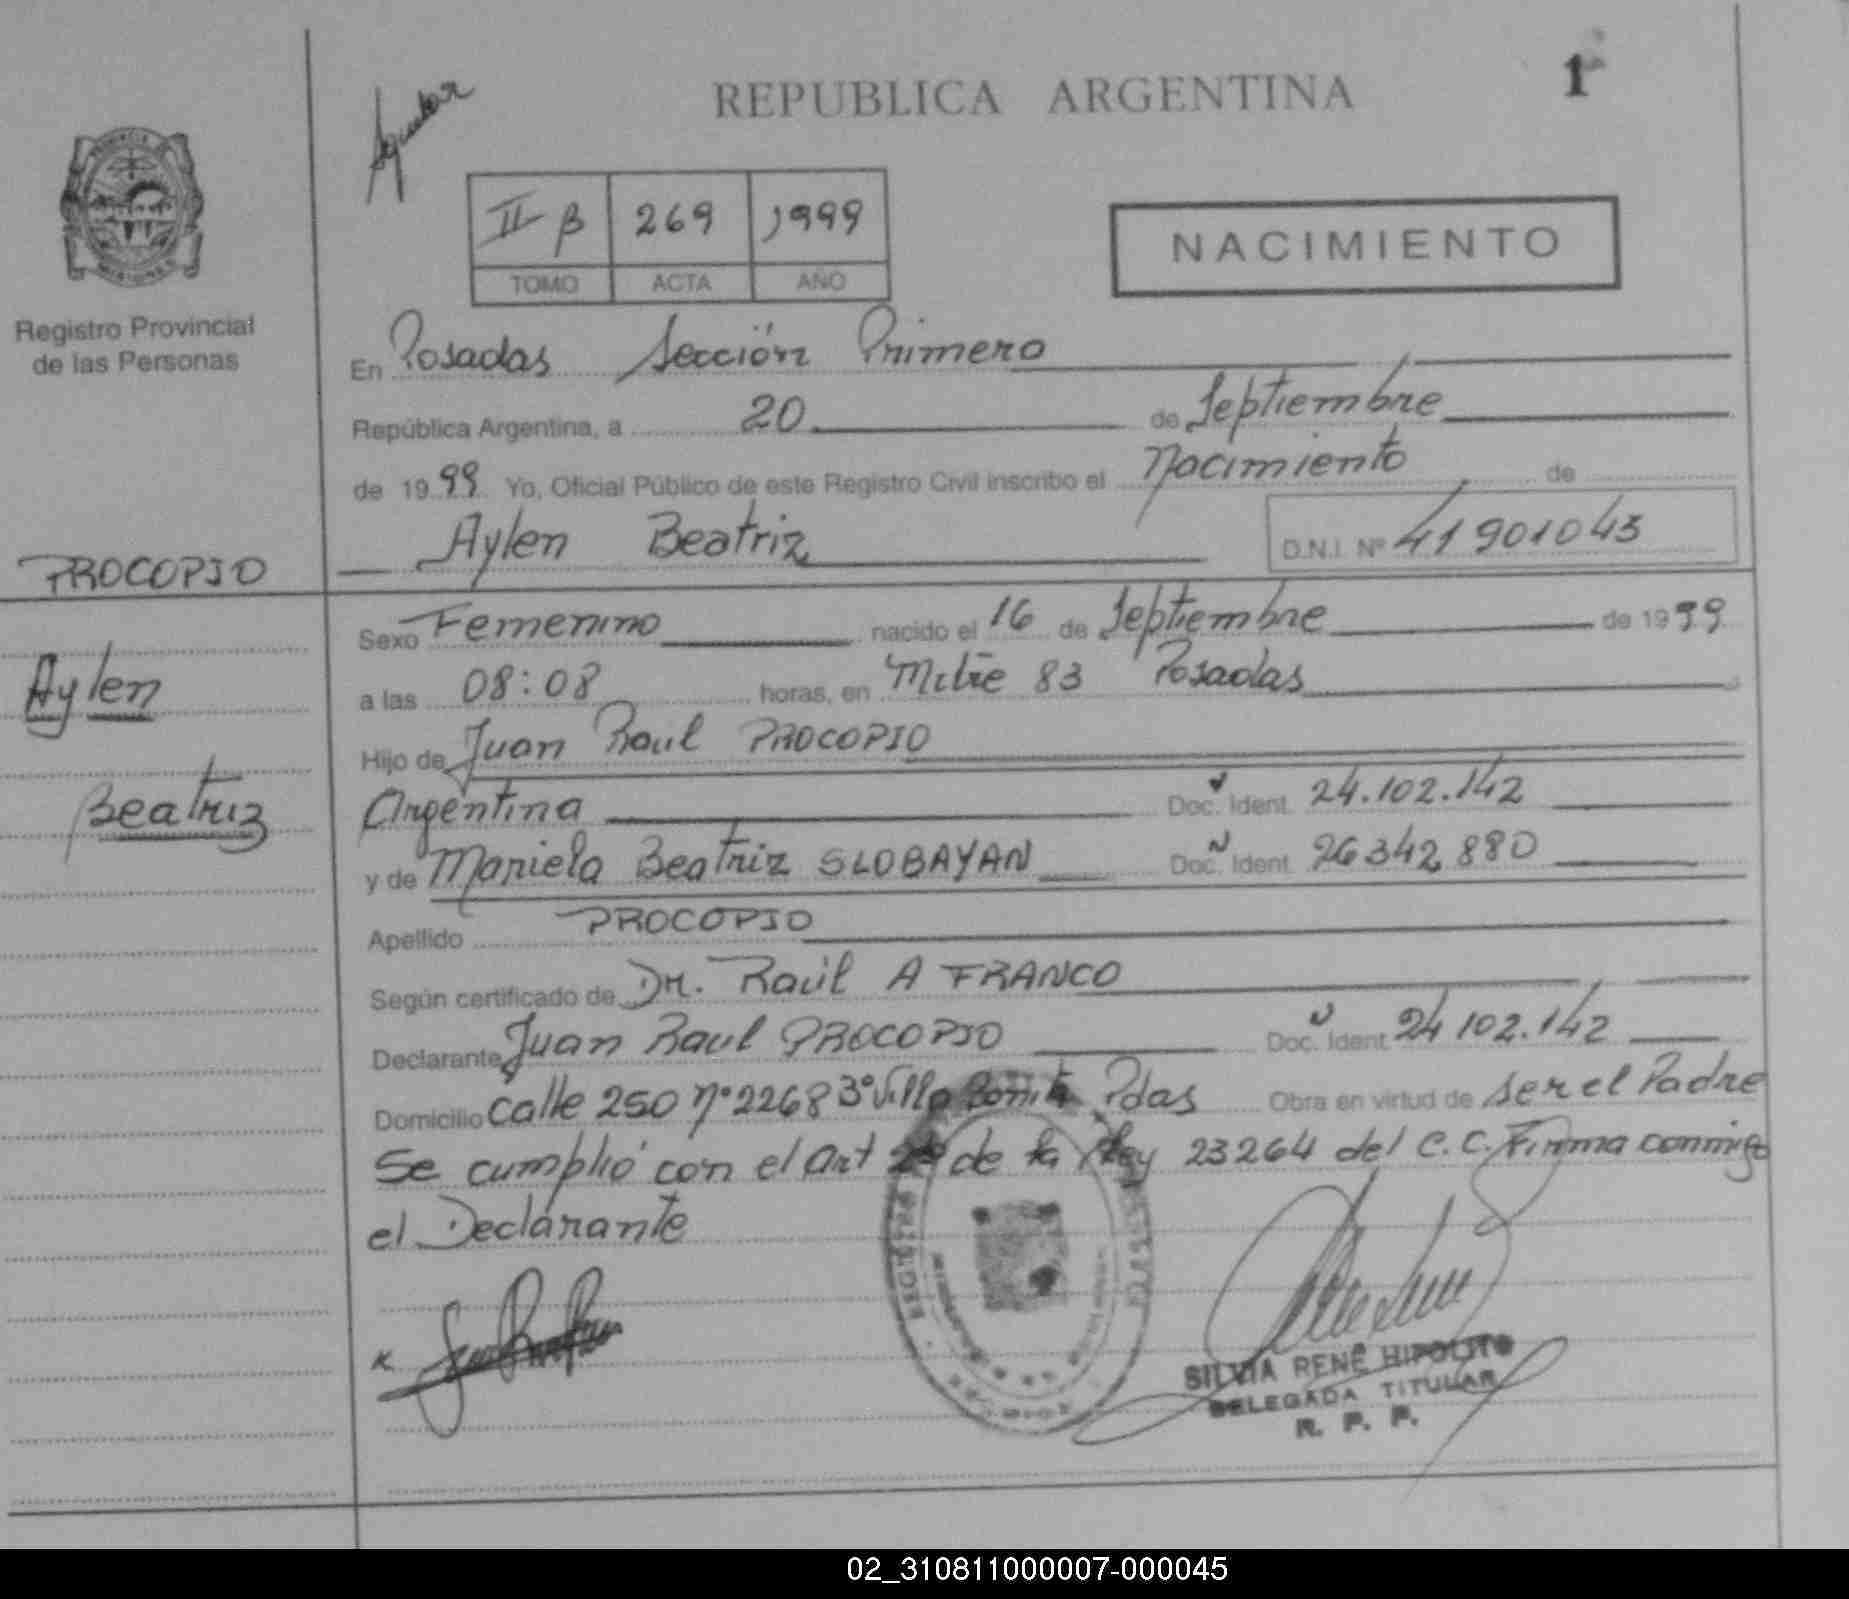 REPUBLICA ARGENTINA
1
Aguilar
II B 269 1999
TOMO ACTA AÑO
NACIMIENTO
MISIONES
Registro Provincial
de las Personas
En Posadas Sección Primera
República Argentina, a 20 de Septiembre
de 1999 Yo, Oficial Público de este Registro Civil inscribo el Nacimiento de
Aylen Beatriz D.N.I. Nº 41901043
PROCOPIO
Aylen
Beatriz
Sexo Femenino nacido el 16 de Septiembre de 1999
a las 08:08 horas, en Mitre 83 Posadas
Hijo de Juan Raul PROCOPIO
Argentina Doc. Ident. 24.102.142
y de Mariela Beatriz SLOBAYAN Doc. Ident. 26342880
Apellido PROCOPIO
Según certificado de Dr. Raúl A FRANCO
Declarante Juan Raul PROCOPIO Doc. Ident. 24102.142
Domicilio Calle 250 nº 2268 3º Villa Bonita Pdas Obra en virtud de ser el Padre
Se cumplió con el art de la Ley 23264 del C.C. Firma conmigo
el Declarante
SILVIA RENÉ HIPOLITO
DELEGADA TITULAR
R. P. P.
02_310811000007-000045